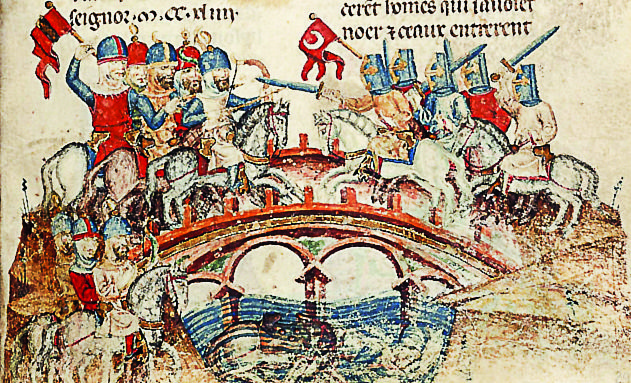 seignor·m·cc·xliiij·
cerēt homes qui sauoiēt
noer ⁊ ceaux entrerent